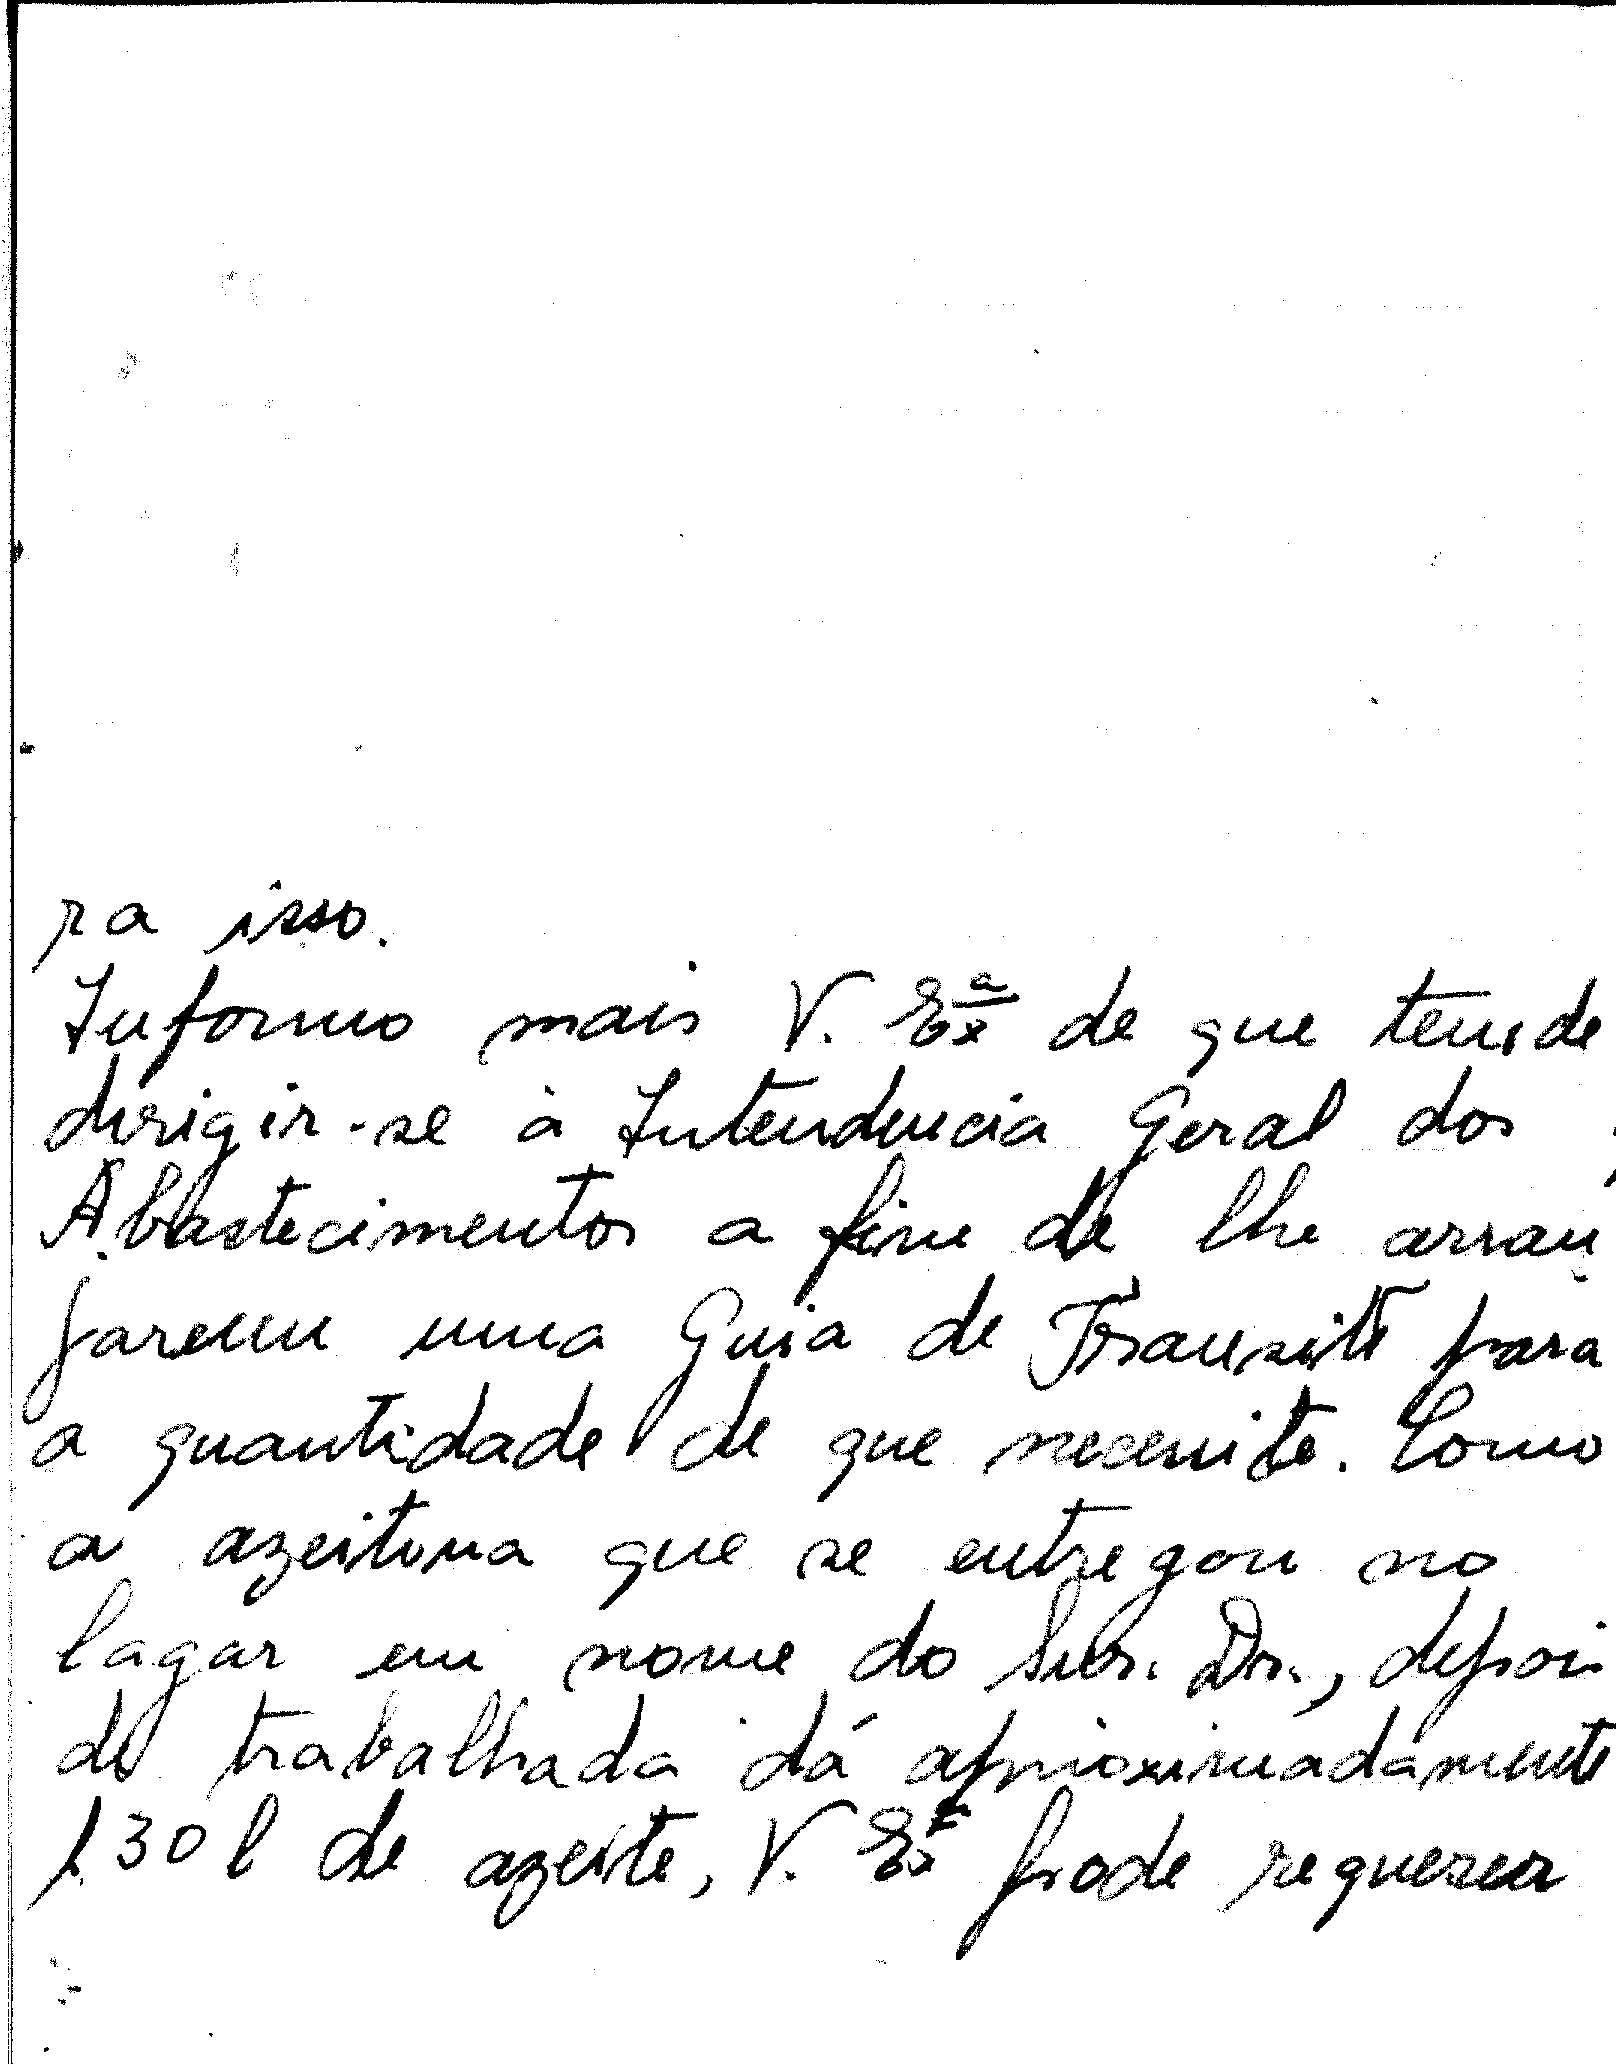 ra isso.
Informo mais V. Exª de que tem de
dirigir-se à Intendencia Geral dos
Abastecimentos a fim de lhe arran
jarem uma Guia de Transito para
a quantidade de que necessite. Como
a azeitona que se entregou no
lagar em nome do Snr. Dr., depois
de trabalhada dá aproximadamente
130 l de azeite, V. Exª pode requerer